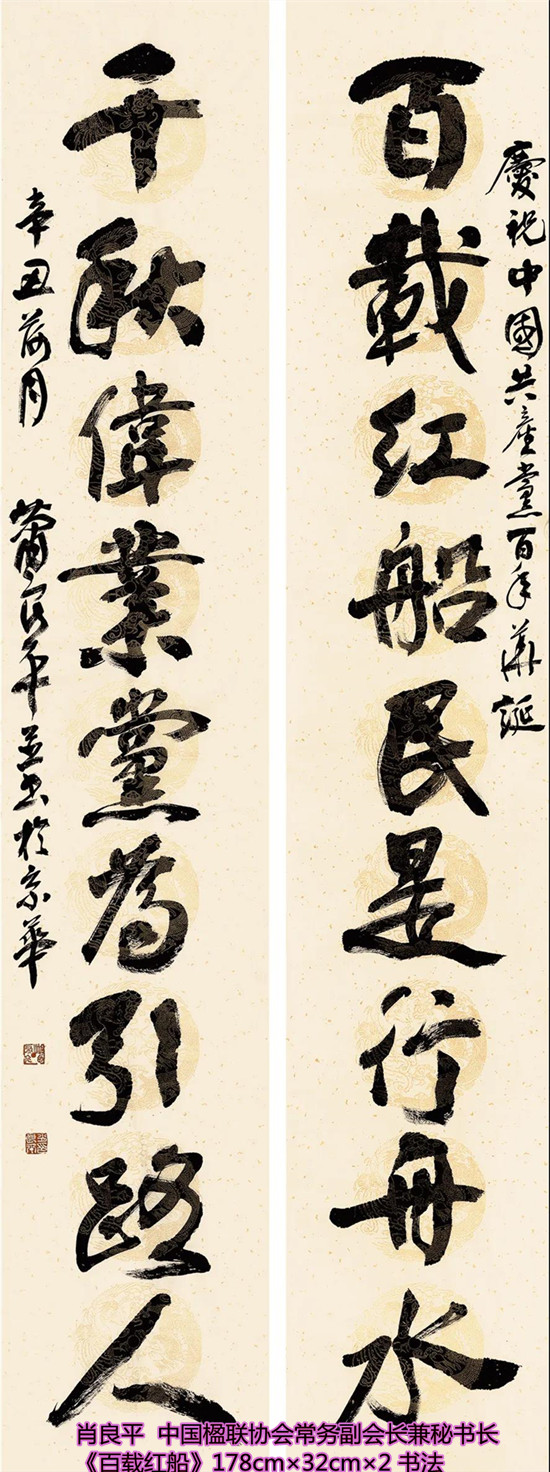 慶祝中國共產黨百年華誕
百載红船民是行舟水
千秋偉業黨為引路人
辛丑荷月 蕭良平並書於京華
肖良平 中国楹联协会常务副会长兼秘书长
《百载红船》178cm×32cm×2 书法